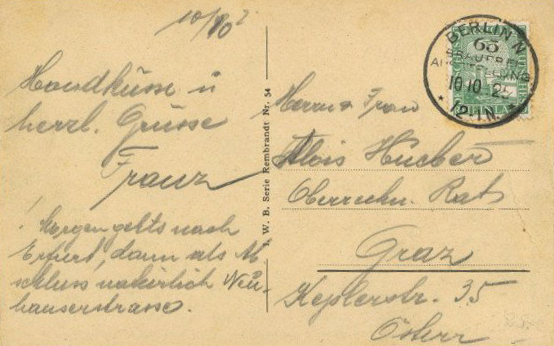 10/10
Handküsse u
herzl. Grüsse
Franz
Morgen gehts nach
Erfurt, dann als A
schluss natürlich Neu-
hauserstrasse.
W. B. Serie Rembrandt Nr. 54
BERLIN N
65
BRAUEREI
AUSSTELLUNG
10 10 25
* 12-1 N. *
Herrn & Frau
Alois Huber
Oberrechn. Rat
Graz
Keplerstr. 35
Österr